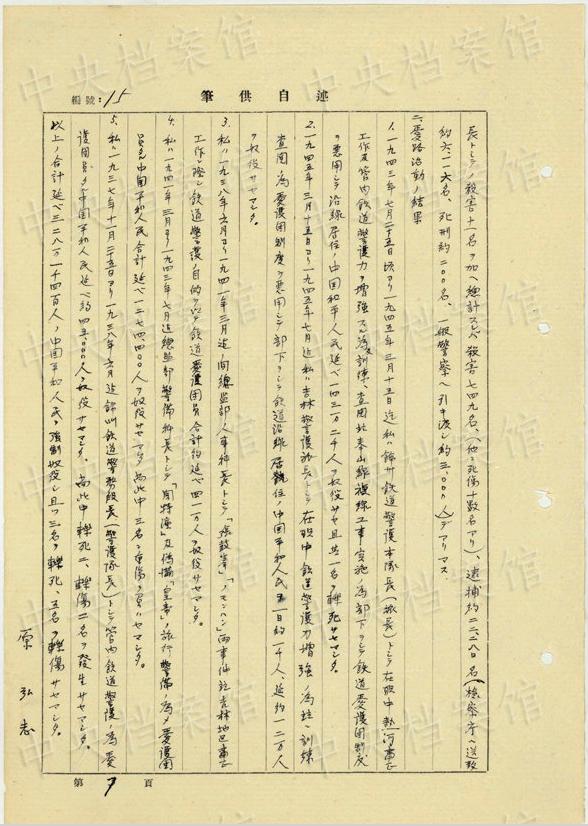 述自供筆
編號：15
長トシテノ殺害十一名ヲ加ヘ總計スレバ殺害七四九名、（他ニ死傷十数名アリ）、逮捕約二二、二八〇名（検察庁ヘ送致
約六一一六名、死刑約二〇〇名、一般警察ヘ引キ渡シ約三、〇〇〇人）デアリマス
二、愛路活動ノ結果
1. 一九四三年七月二十五日頃ヨリ一九四五年三月十五日迄私ハ錦州鉄道警護本隊長（旅長）トシテ在職中熱河
工作及管内鉄道警護力ヲ増強スル為訓練、査閲北奉山線複線工事実施ノ為部下ヲシテ鉄道愛護団制度
ヲ悪用シテ沿線居住ノ中国和平人民延ベ一四三万二千人ヲ奴役サセ且其一名ヲ轢死サセマシタ。
2. 一九四五年三月十五日ヨリ一九四五年七月迄私ハ吉林警護旅長トシテ在職中鉄道警護力増強ノ為 訓練
査閲ノ為愛護団制度ヲ悪用シテ部下ヲシテ鉄道沿線居住ノ中国平和人民 一日約一千人、延約一二万人
ヲ奴役サセマシタ。
3. 私ハ一九三八年六月ヨリ一九四一年三月迄ノ間總監部人事科長トシテ「張鼓峯」「ノモンハン」両事件 吉林地区
工作ニ際シ鉄道警護ノ目的ヲ以テ鉄道愛護団員合計約延ベ四一万人ヲ奴役サセマシタ。
4. 私ハ一九四一年三月ヨリ一九四三年七月迄總監部警備科長トシテ「関特演」及偽満「皇帝」ノ旅行警備ノ為メ愛護団
員タル中国平和人民合計延ベ一二七四、四〇〇人ヲ奴役サセマシタ 尚此中三名ニ重傷ヲ負ハセマシタ。
5. 私ハ一九三七年十一月二十五日ヨリ一九三八年六月迄錦州鉄道警務段長（警護隊長）トシテ管内鉄道警護ノ為愛
護団員タル中国平和人民延ベ約四五、〇〇〇人ヲ奴役サセマシタ。尚此中轢死二、轢傷二名ヲ発生サセマシタ。
以上ノ合計延ベ三二八万一千四百人ノ中国平和人民ヲ強制奴役シ且ツ三名ヲ轢死、五名ヲ轢傷サセマシタ。
原 弘志
第 7 頁
中央档案馆